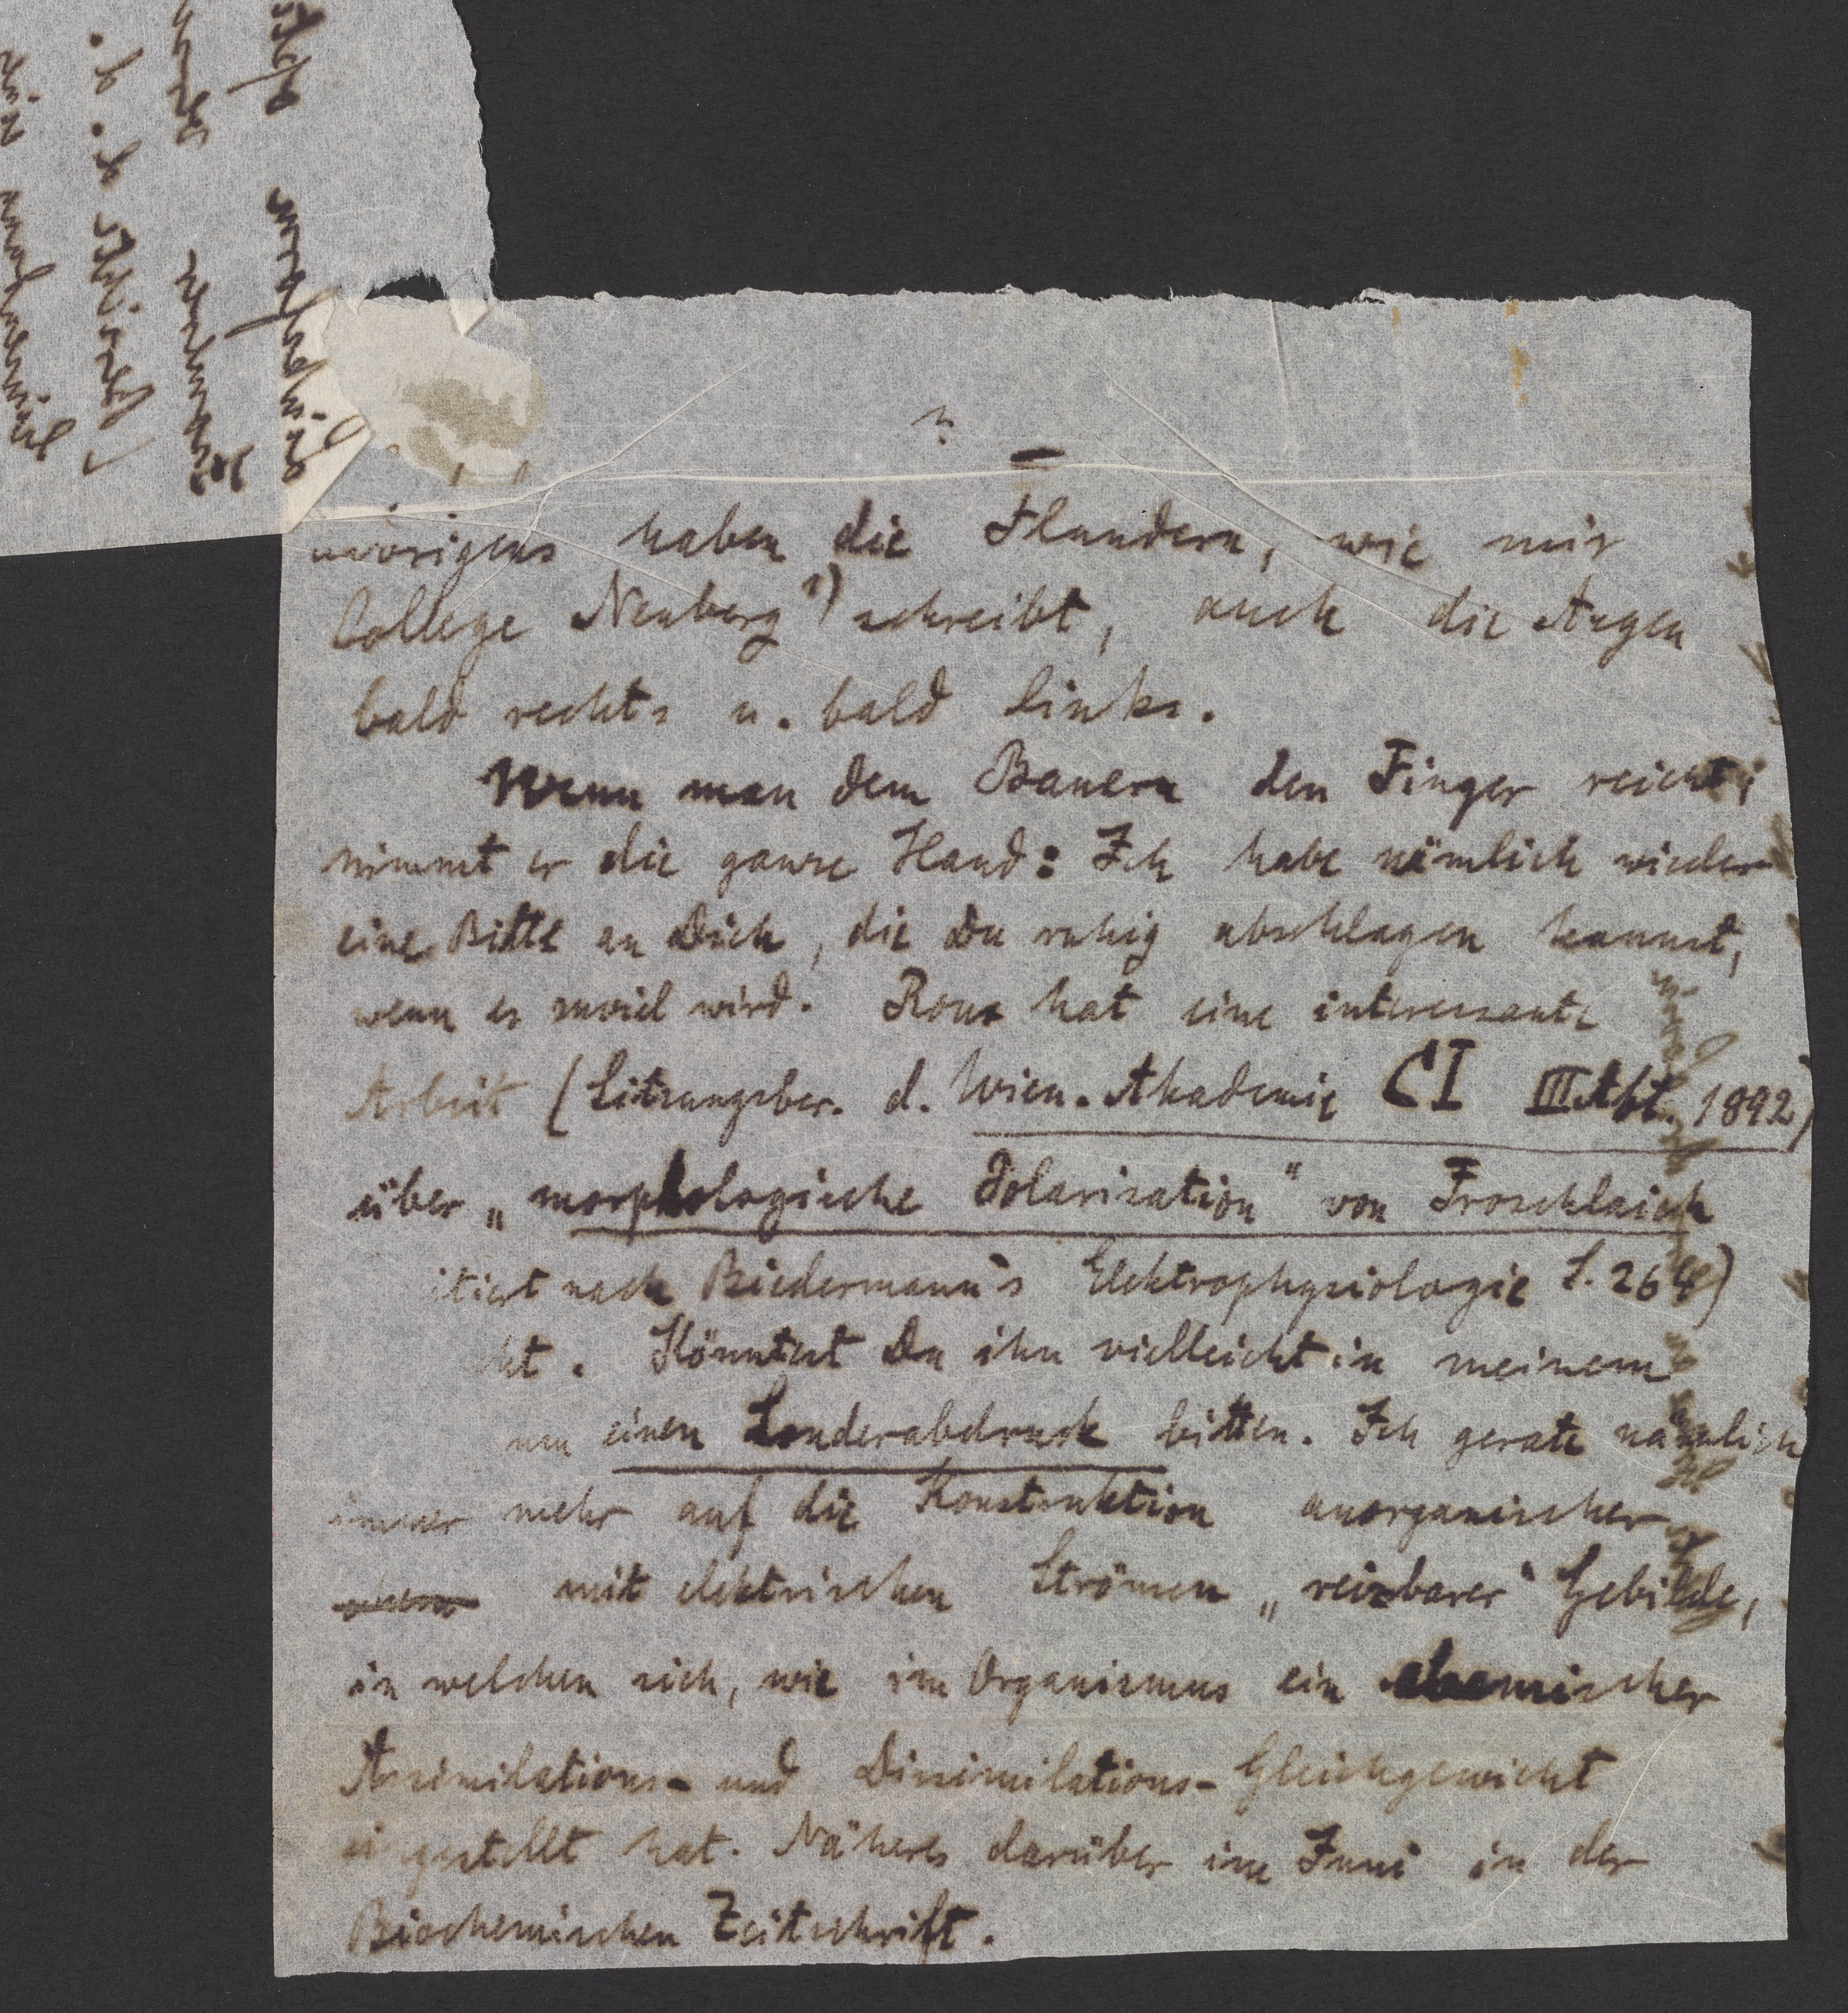 übrigens haben die Flundern, wie mir
College Neuberg 1) schreibt, auch die Augen
bald rechts u. bald links.
Wenn man dem Bauern den Finger reicht,
nimmt er die ganze Hand: Ich habe nämlich wieder
eine Bitte an Dich, die Du ruhig abschlagen kannst,
wenn es zuviel wird. Roux hat eine interessante
Arbeit (Sitzungsber. d. Wien. Akademie CI III Abt. 1892)
über „morphologische Polarisation" von Froschlaich
itiert nach Biedermann's Elektrophysiologie S. 264)
cht. Könntest Du ihn vielleicht in meinem
um einen Sonderabdruck bitten. Ich gerate nämlich
immer mehr auf die Konstruktion anorganischer
mit elektrischen Strömen „reizbarer" Gebilde,
in welchen sich, wie im Organismus ein chemischer
Assimilations- und Dissimilations-Gleichgewicht
eingestellt hat. Näheres darüber im Juni in der
Biochemischen Zeitschrift.